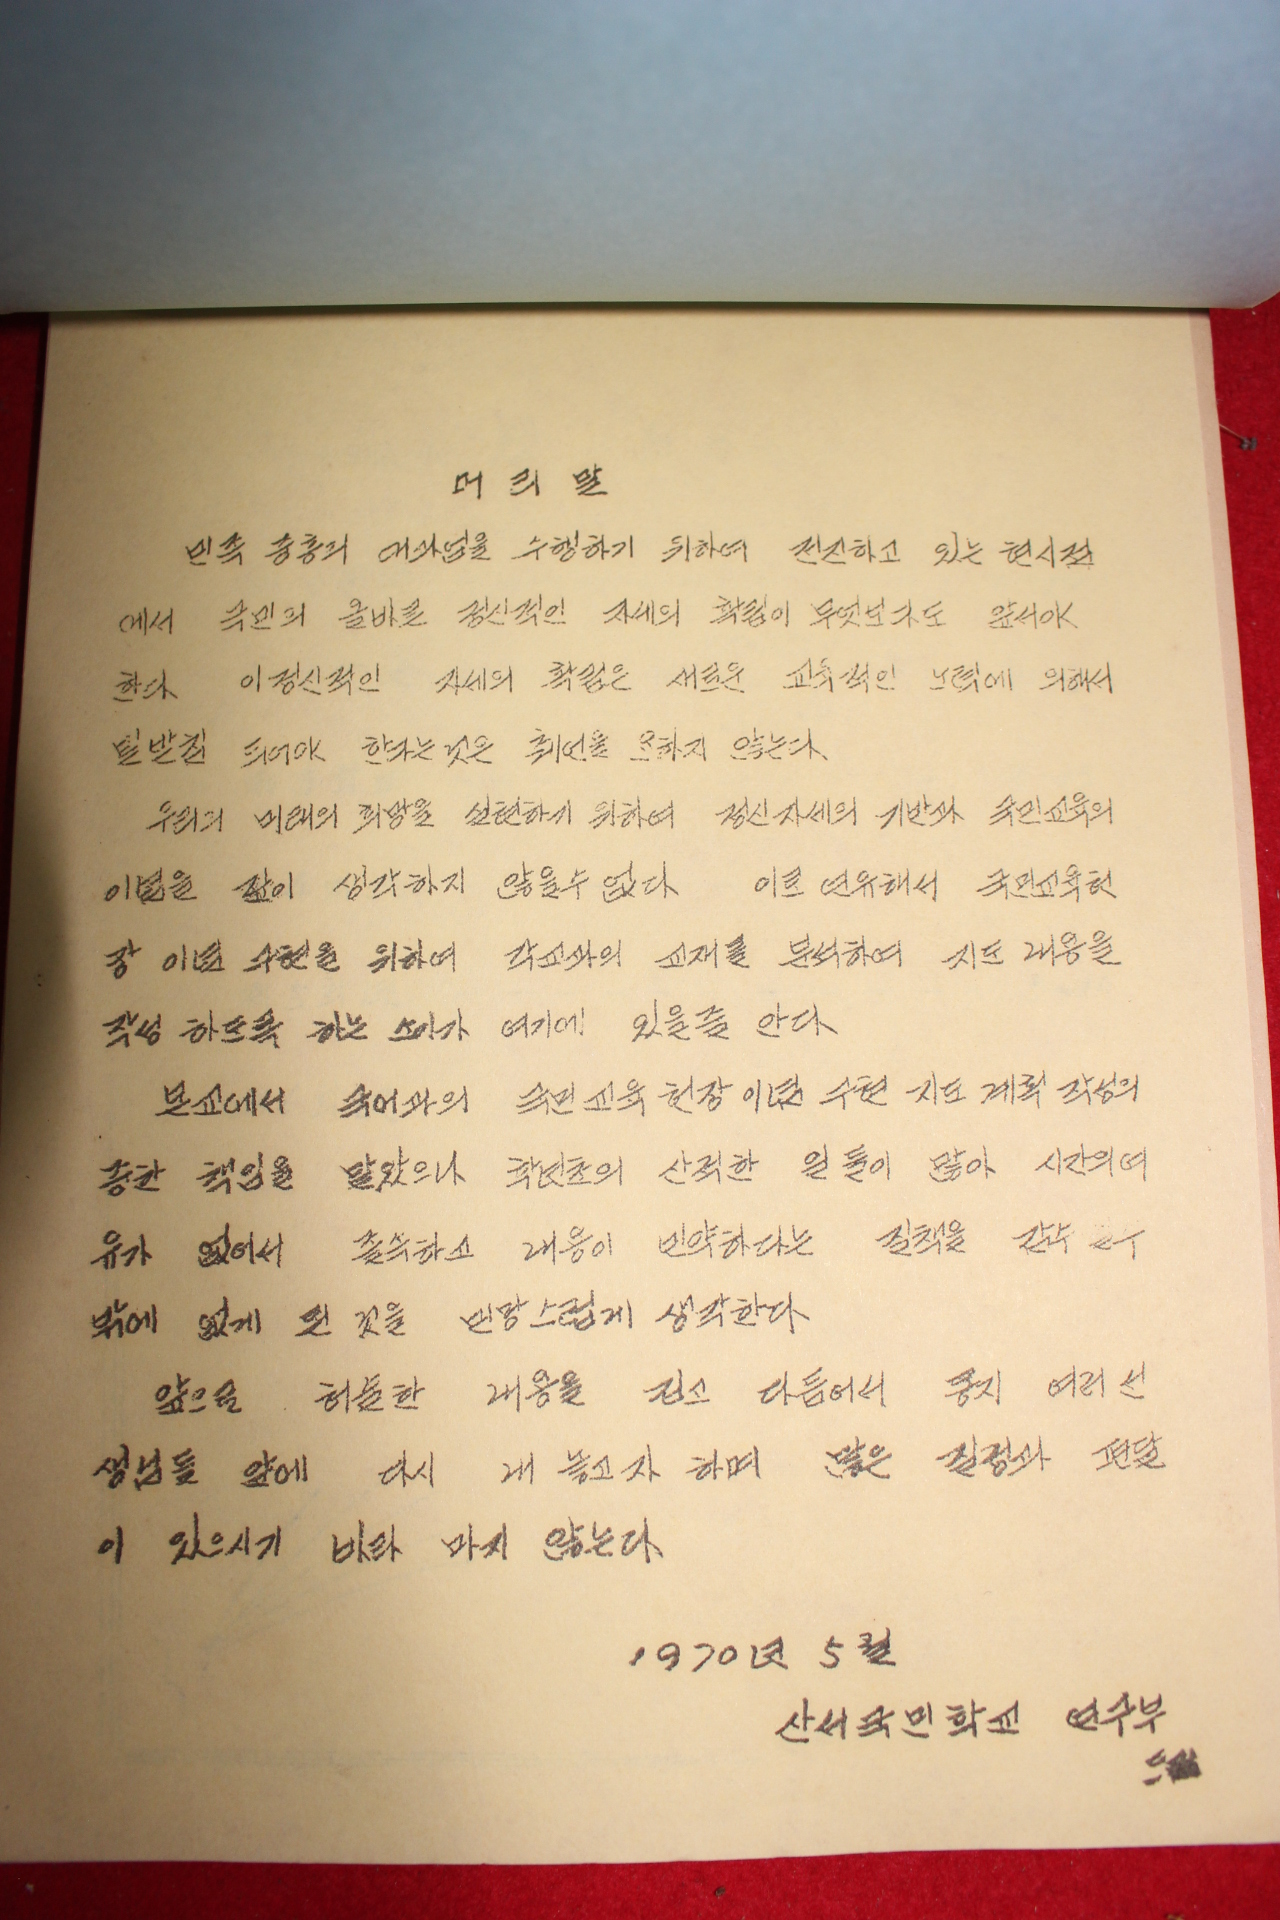 머리말
민족 중흥의 대과업을 수행하기 위하여 전진하고 있는 현시점
에서 국민의 올바른 정신적인 자세의 확립이 무엇보다도 앞서야
한다 이 정신적인 자세의 확립은 새로운 교육적인 노력에 의해서
뒷받침 되어야 한다는 것은 췌언을 요하지 않는다.
우리의 미래의 희망을 실현하기 위하여 정신자세의 기반과 국민교육의
이념을 깊이 생각하지 않을수 없다 이로 연유해서 국민교육헌
장 이념 구현을 위하여 각교과의 교재를 분석하여 지도 내용을
작성 하도록 하는 소이가 여기에 있을줄 안다.
본교에서 국어과의 국민교육헌장 이념 구현 지도 계획 작성의
중한 책임을 맡았으나 학년초의 산적한 일들이 많아 시간의 여
유가 없어서 졸속하고 내용이 빈약하다는 질책을 감수
밖에 없게 된 것을 민망스럽게 생각한다.
앞으로 허술한 내용을 깁고 다듬어서 동지 여러 선
생님들 앞에 다시 내 놓고자 하며 많은 질정과 편달
이 있으시기 바라 마지 않는다.
1970년 5월
산서국민학교 연수부